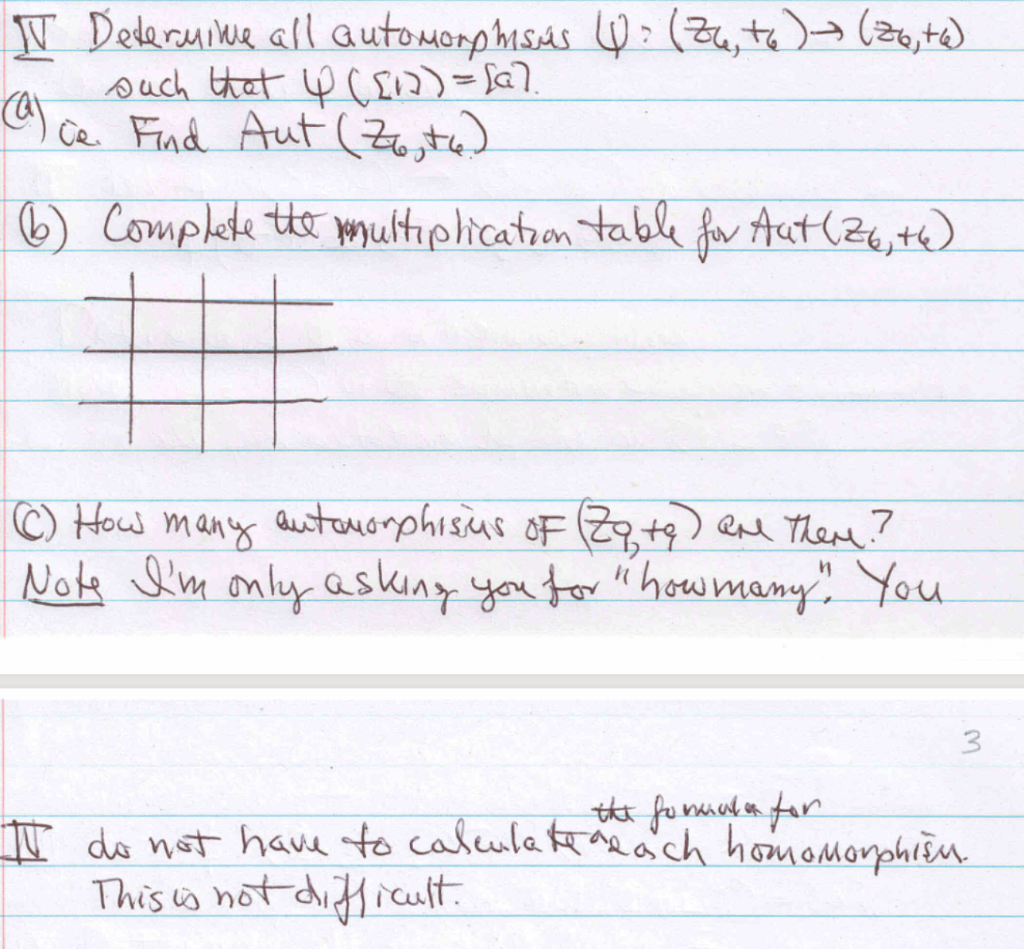 IV Determine all automorphisms φ: (Z6, +6) → (Z6, +6)
such that φ([1]) = [a].
(a) i.e. Find Aut (Z6, +6)
(b) Complete the multiplication table for Aut (Z6, +6)
(c) How many automorphisms of (Z9, +9) are There?
Note I'm only asking you for "howmany". You
3
the formula for
IV do not have to calculate ^ each homomorphism.
This is not difficult.